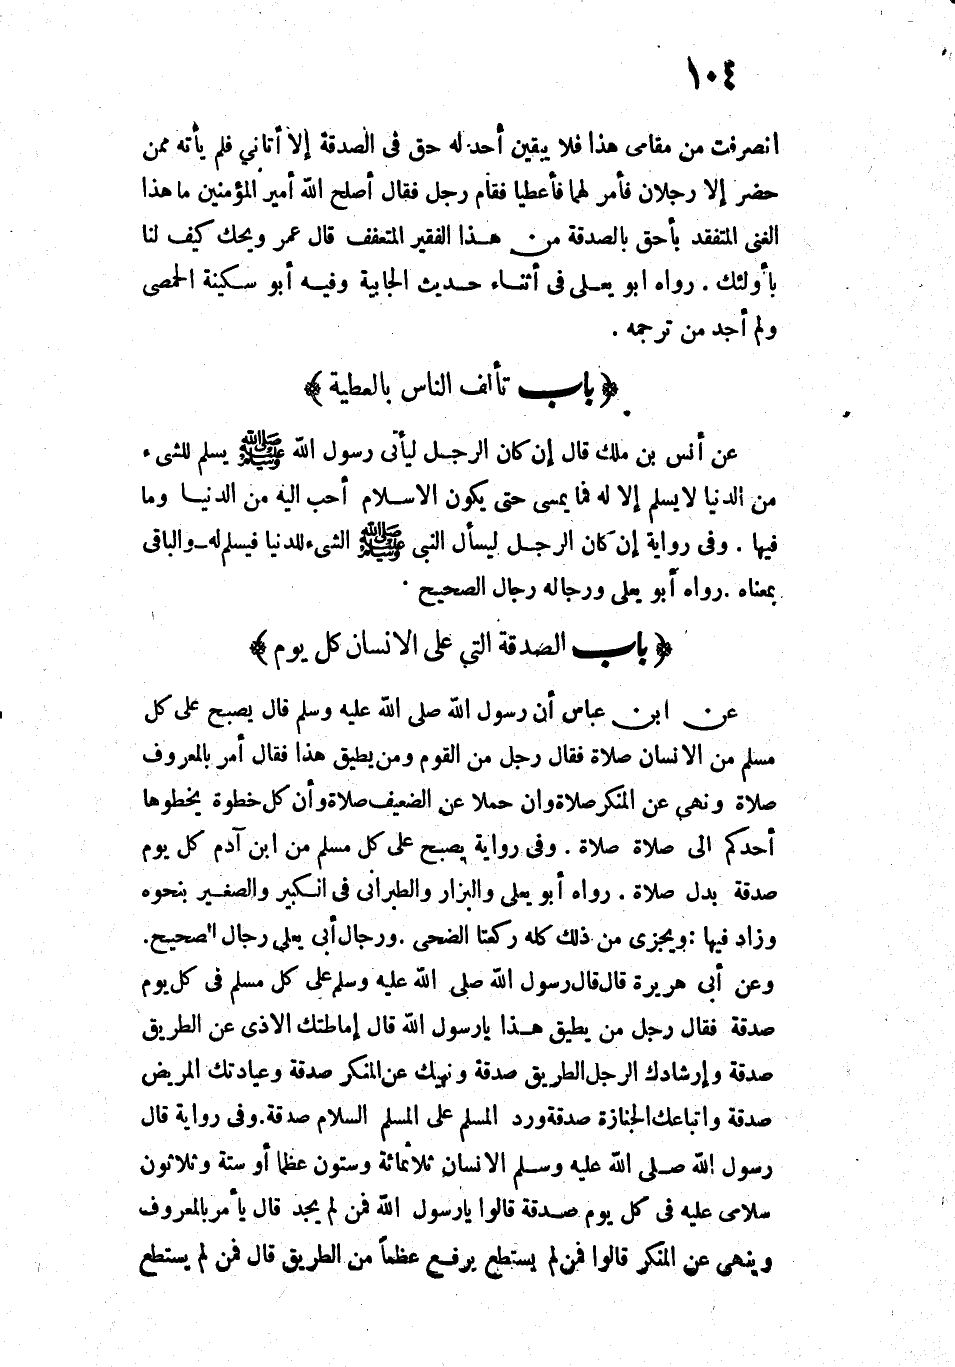 ١٠٤
انصرفت من مقامى هذا فلا يبقين أحد له حق فى الصدقة إلا أتاني فلم يأته ممن
حضر إلا رجلان فأمر لهما فأعطيا فقام رجل فقال أصلح الله أمير المؤمنين ما هذا
الغنى المتفقد بأحق بالصدقة من هذا الفقير المتعفف قال عمر ويحك كيف لنا
بأولئك . رواه ابو يعلى فى أثناء حديث الجابية وفيه أبو سكينة الحمصى
ولم أجد من ترجمه .
﴿ باب تألف الناس بالعطية ﴾
عن أنس بن ملك قال إن كان الرجل ليأتى رسول الله ﷺ يسلم للشىء
من الدنيا لا يسلم إلا له فما يمسى حتى يكون الاسلام أحب اليه من الدنيا وما
فيها . وفى رواية إن كان الرجل ليسأل النبى ﷺ الشىء للدنيا فيسلم له ـ والباقى
بمعناه . رواه أبو يعلى ورجاله رجال الصحيح .
﴿ باب الصدقة التي على الانسان كل يوم ﴾
عن ابن عباس أن رسول الله صلى الله عليه وسلم قال يصبح على كل
مسلم من الانسان صلاة فقال رجل من القوم ومن يطيق هذا فقال أمر بالمعروف
صلاة ونهي عن المنكر صلاة وان حملا عن الضعيف صلاة وأن كل خطوة يخطوها
أحدكم الى صلاة صلاة . وفى رواية يصبح على كل مسلم من ابن آدم كل يوم
صدقة بدل صلاة . رواه أبو يعلى والبزار والطبرانى فى الكبير والصغير بنحوه
وزاد فيها : ويجزى من ذلك كله ركعتا الضحى . ورجال أبى يعلى رجال الصحيح .
وعن أبى هريرة قال قال رسول الله صلى الله عليه وسلم على كل مسلم فى كل يوم
صدقة فقال رجل من يطيق هذا يارسول الله قال إماطتك الاذى عن الطريق
صدقة وإرشادك الرجل الطريق صدقة ونهيك عن المنكر صدقة وعيادتك المريض
صدقة واتباعك الجنازة صدقة ورد المسلم على المسلم السلام صدقة . وفى رواية قال
رسول الله صلى الله عليه وسلم الانسان ثلاثمائة وستون عظما أو ستة وثلاثون
سلامى عليه فى كل يوم صدقة قالوا يارسول الله فمن لم يجد قال يأمر بالمعروف
وينهى عن المنكر قالوا فمن لم يستطع يرفع عظماً من الطريق قال فمن لم يستطع